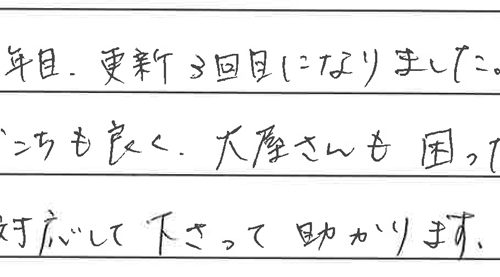 年目、更新3回目になりました。
こちも良く、大屋さんも困った
対応して下さって助かります、